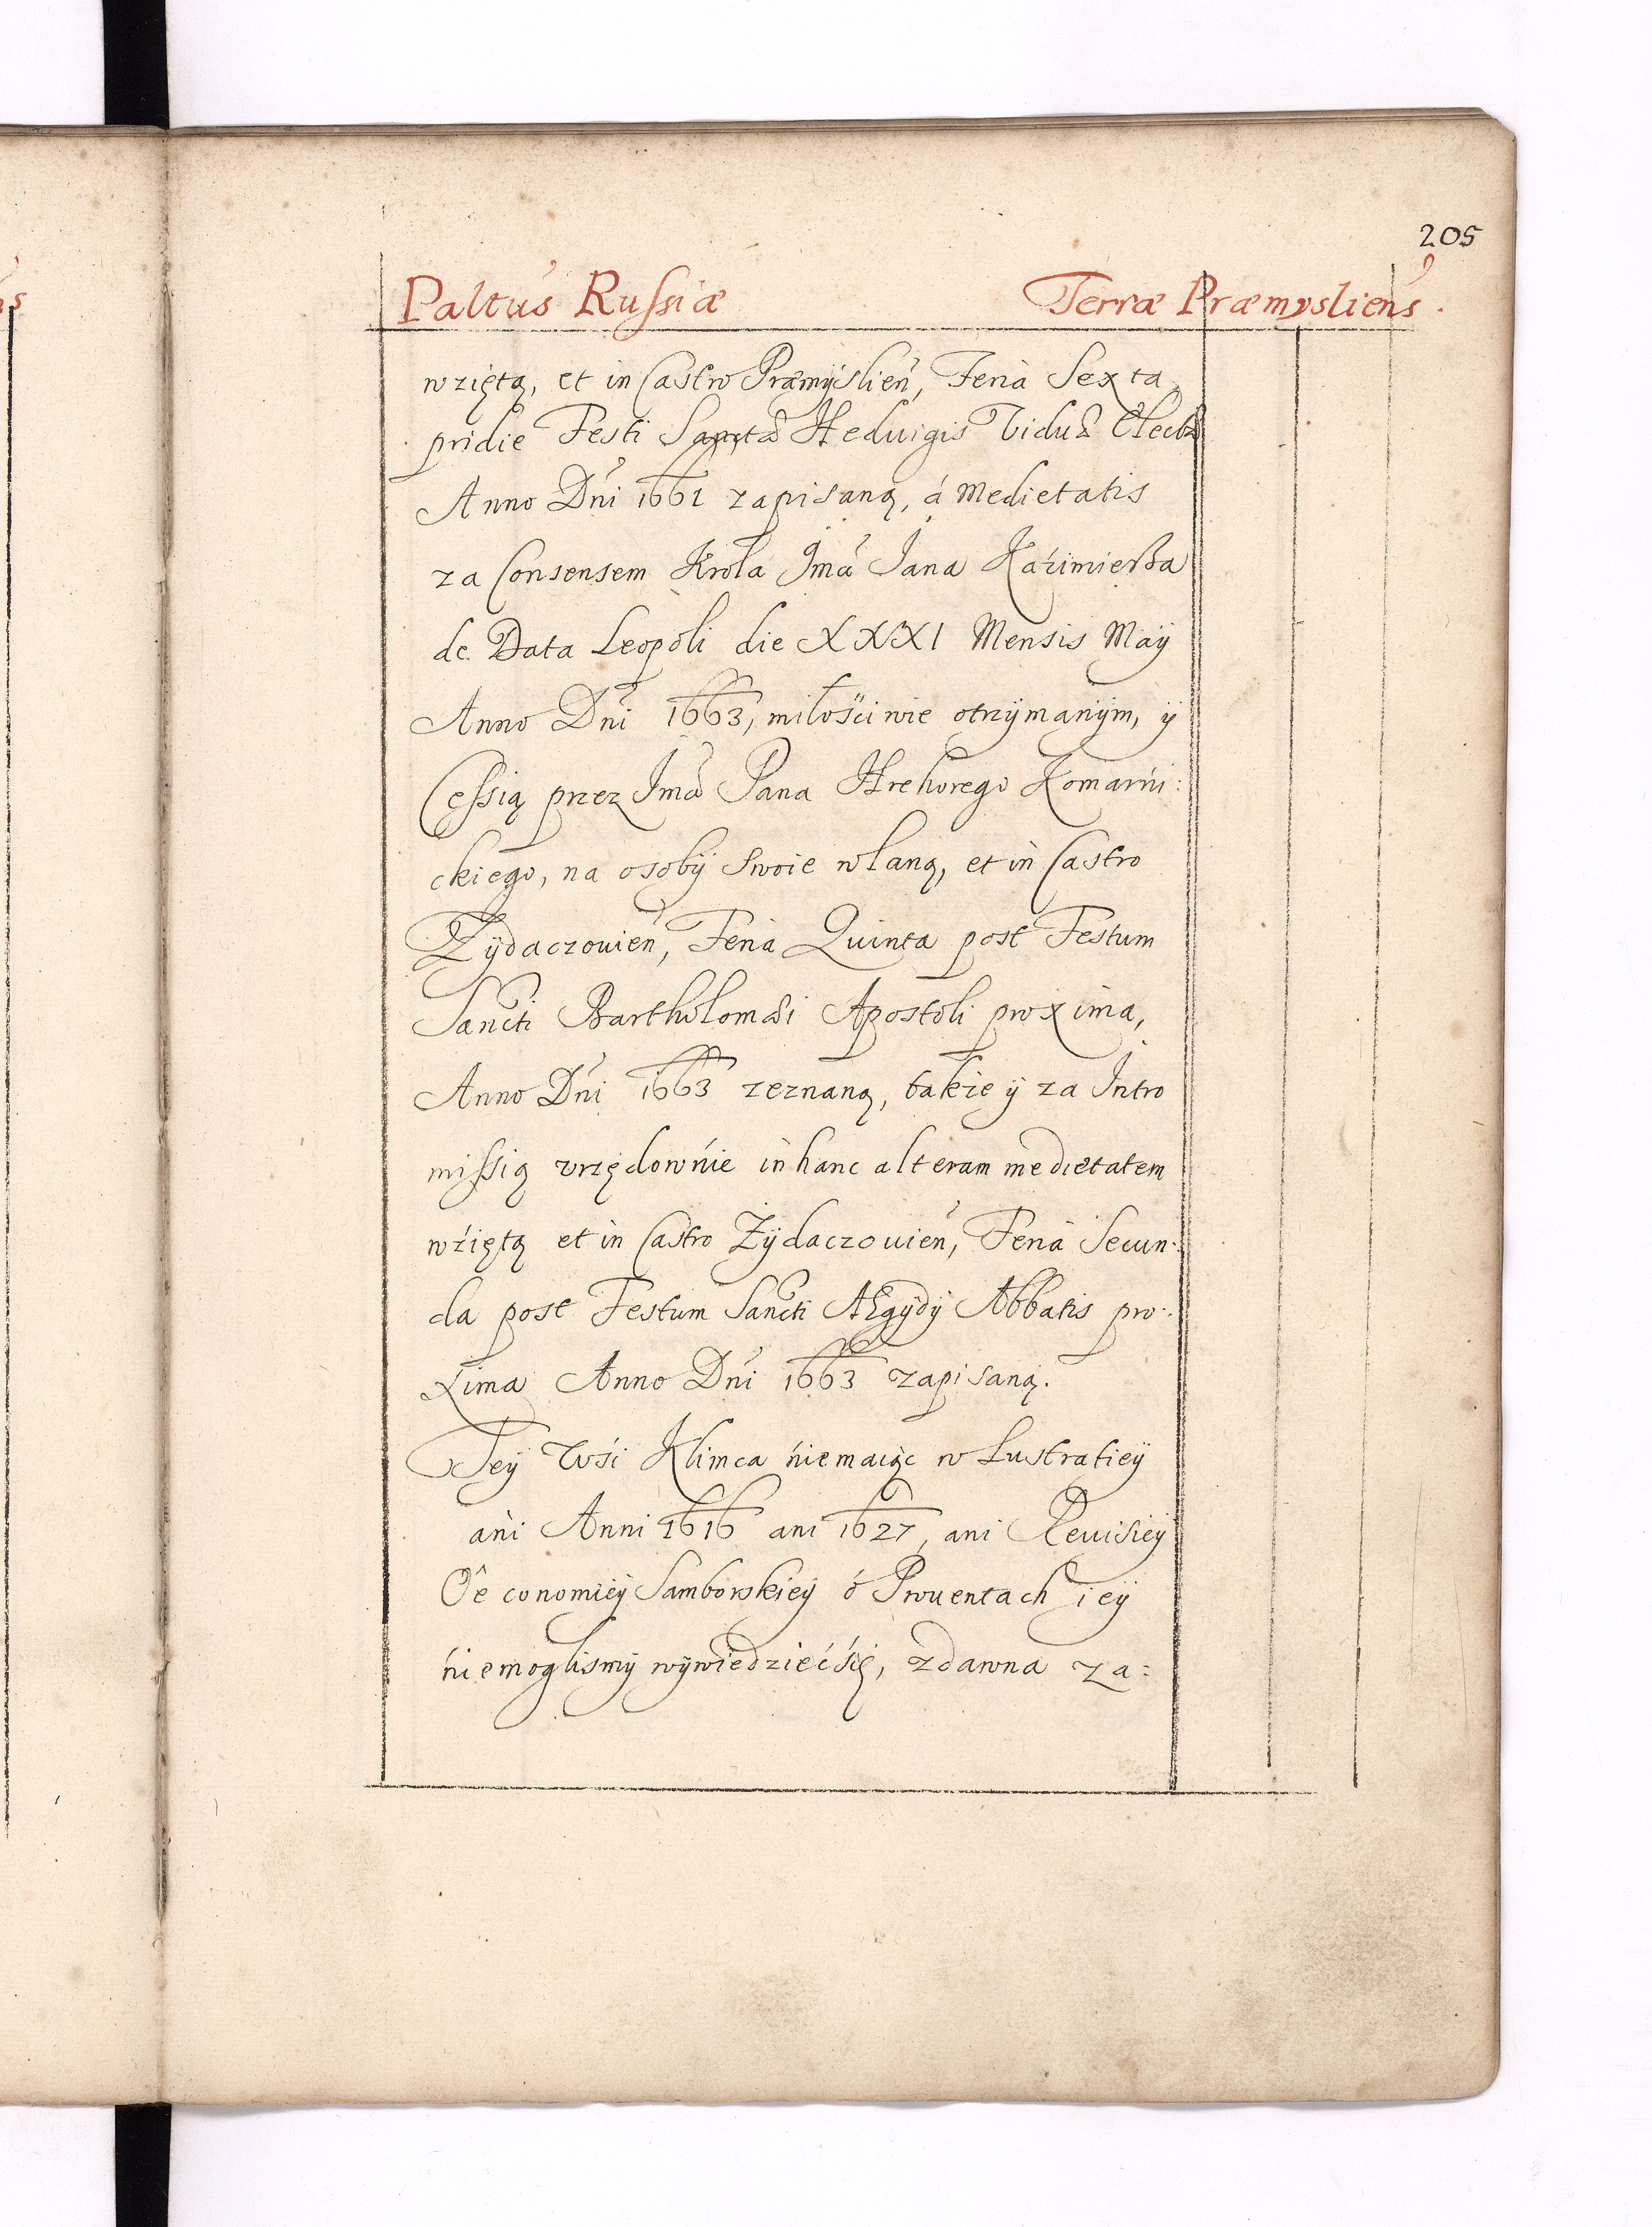 205
Paltus Russiæ Terræ Præmysliens.
wziętą, et in Castro Præmyslien, Feria Sexta
pridie Festi Sanctæ Heduigis Viduæ Electæ
Anno Dni 1661 zapisaną, á Medietatis
za Consensem Krola Jmā Jana Kaźimierza
de Data Leopoli die XXXI Mensis Maÿ
Anno Dni 1663, miłośćiwie otrzÿmanÿm, ÿ
Cessią przez Jmā Pana Hrehorego Komarni:
ckiego, na osobÿ swoie wlaną, et in Castro
Żÿdaczouien, Feria Quinta post Festum
Sancti Bartholomæi Apostoli proxima,
Anno Dni 1663 zeznaną, także ÿ za Intro
missią vrzędownie in hanc alteram medietatem
wźiętą et in Castro Żÿdaczouien, Feria Secun:
da post Festum Sancti Ægÿdÿ Abbatis pro:
xima Anno Dni 1663 zapisaną.
Teÿ Wśi Klimca niemaiąc w Lustratieÿ
ani Anni 1616 ani 1627, ani Reuisieÿ
Oeconomieÿ Samborskieÿ ó Prouentach ieÿ
niemoglismÿ wÿwiedziećśię, zdawna za: